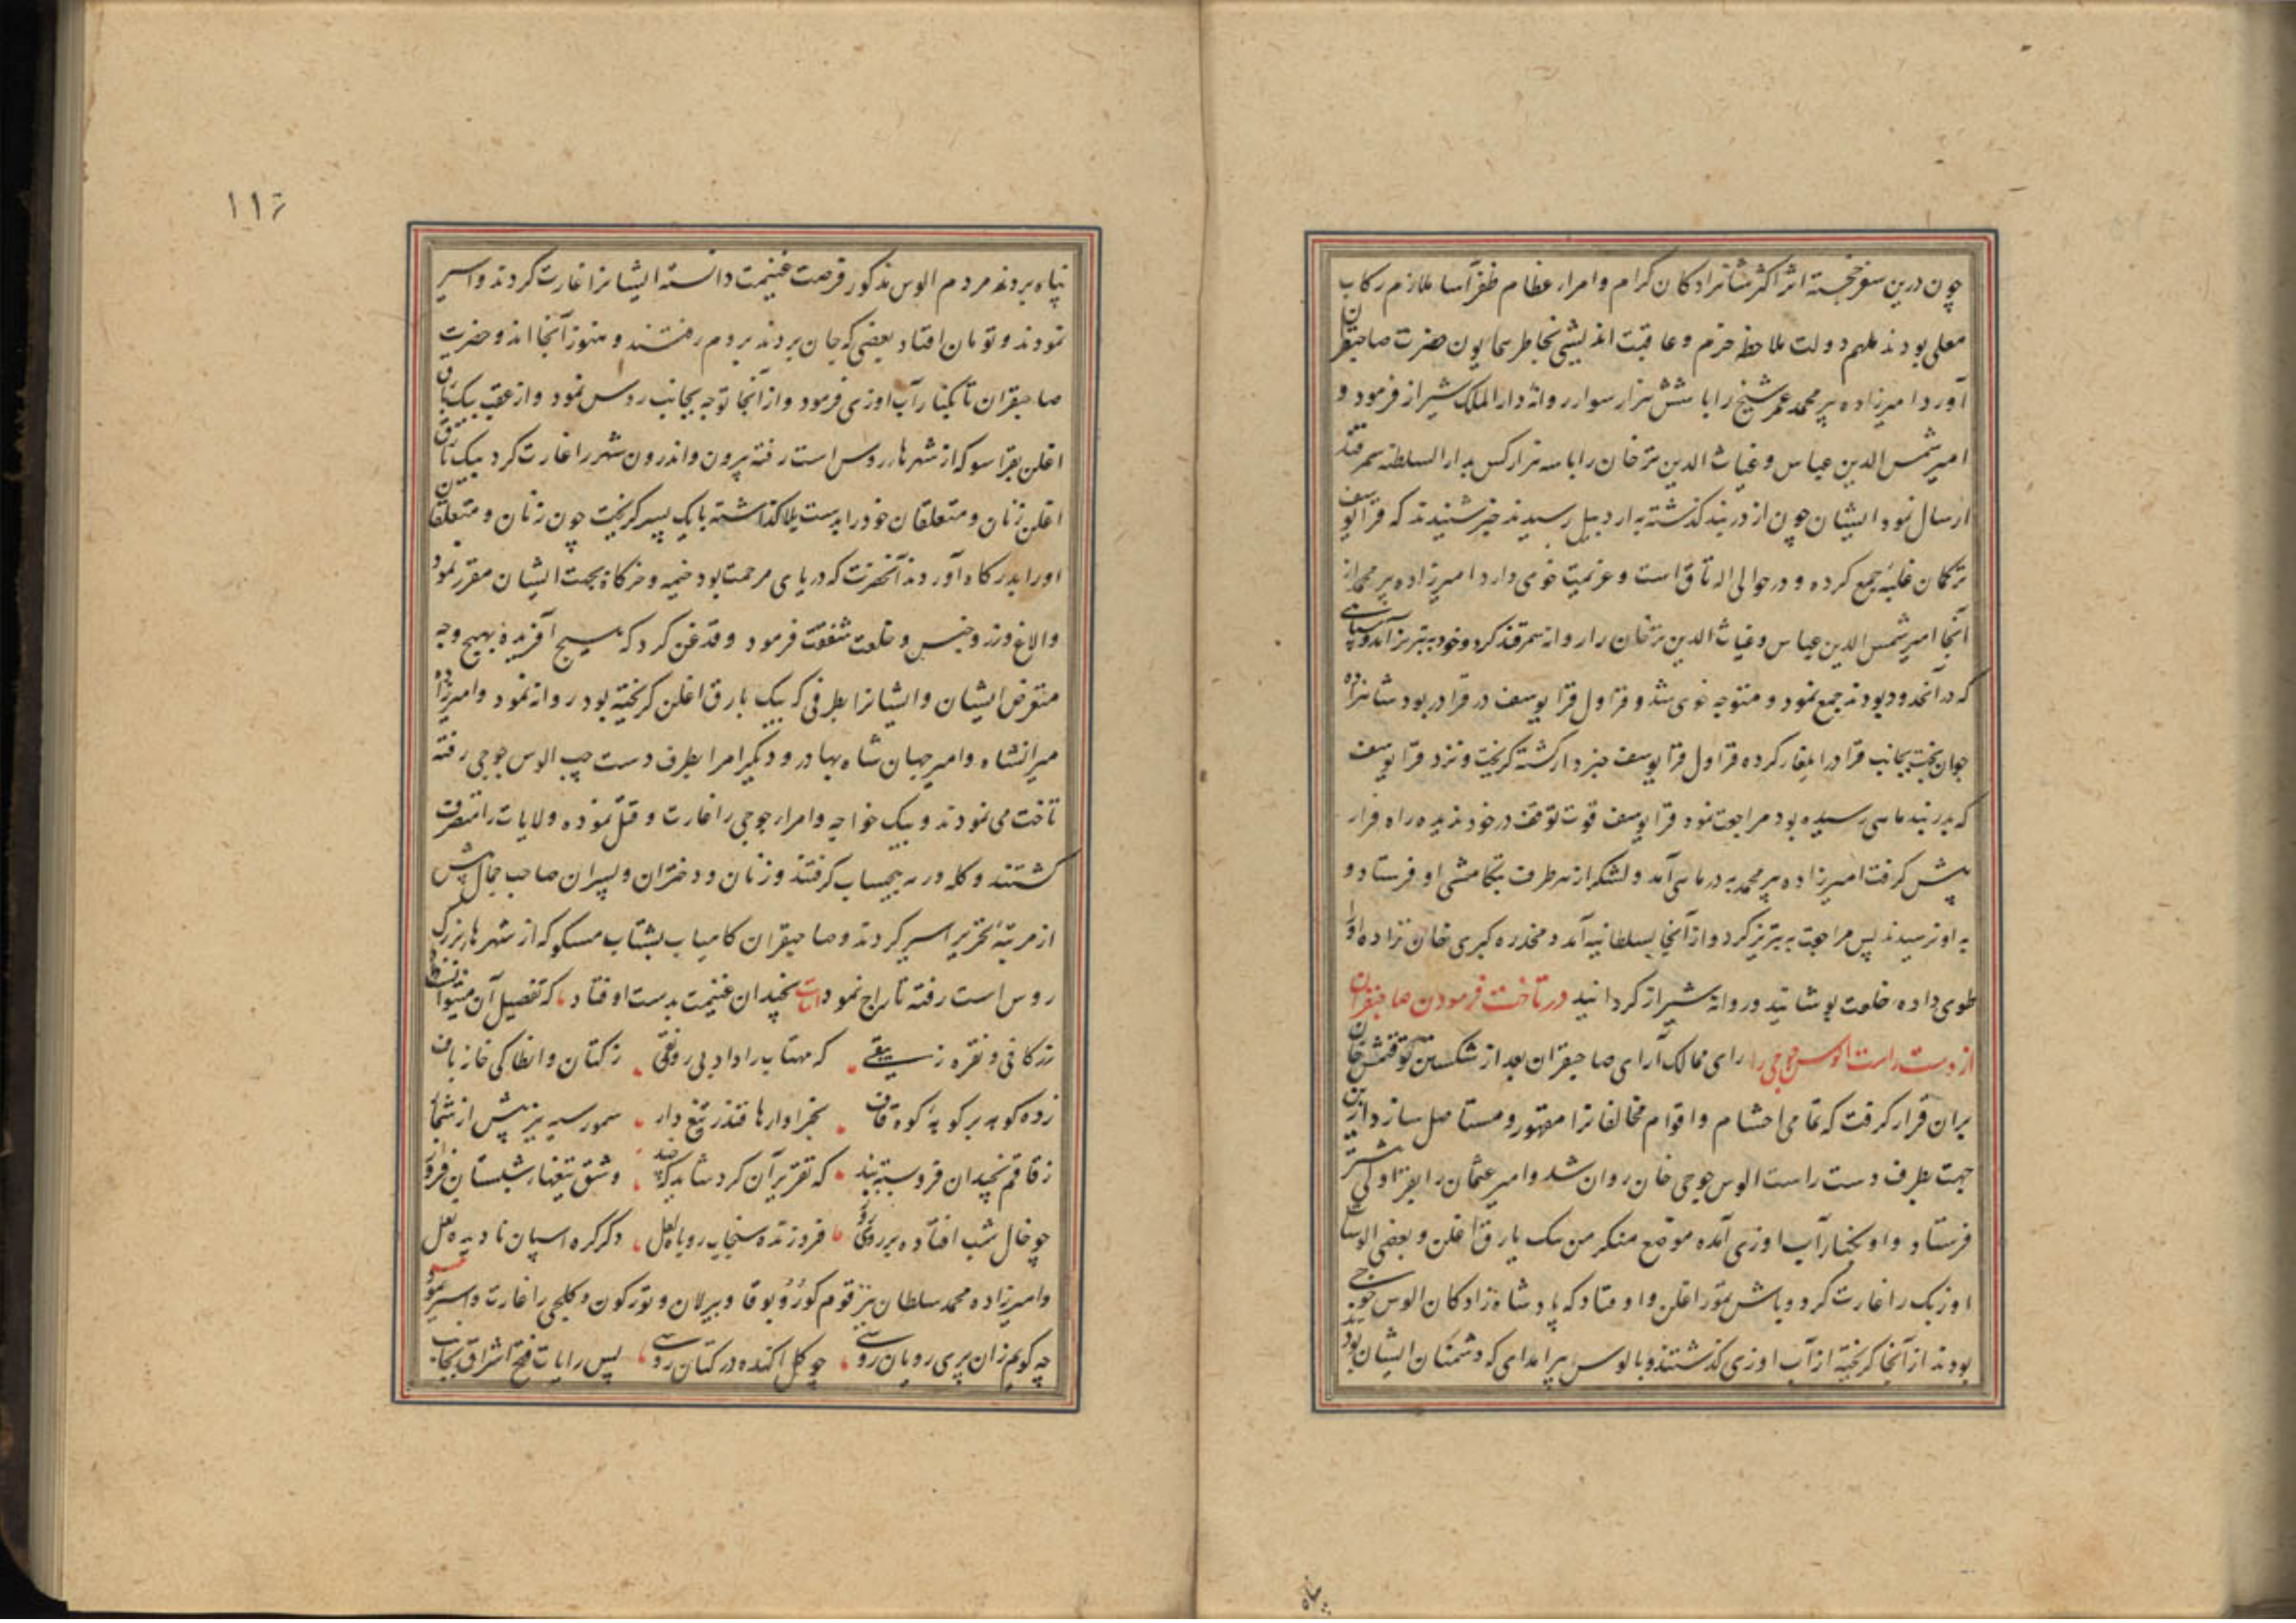 چون درین سفر خجسته اثر اکثر شاهزادکان کرام و امراء عظام ظفرآسا ملازم رکاب
معلی بودند ملهم دولت ملاحظه حزم و عاقبت اندیشی بخاطر همایون حضرت صاحبقران
آورد امیرزاده پیر محمد عمر شیخ را با شش هزار سوار روانه دار الملک شیراز فرمود و
امیر شمس الدین عباس و غیاث الدین ترخان را با سه هزار کس بدار السلطنه سمرقند
ارسال نمود ایشان چون از دربند کذشته به اردبیل رسیدند خبر شنیدند که قرا یوسف
ترکمان غلبه جمع کرده و در حوالی اله تاق است و عزیمت خوی دارد امیرزاده پیر محمد از
آنجا امیر شمس الدین عباس و غیاث الدین ترخان را روانه سمرقند کرد و خود به تبریز آمد و سپاهی
که در آنحدود بودند جمع نمود و متوجه خوی شد و قراول قرا یوسف در قرا دره بود شاهزاده
جوان بخت بجانب قرا دره ایلغار کرده قراول قرا یوسف خبردار کشته کریخت و نزد قرا یوسف
که ببند ماهی رسیده بود مراجعت نمود قرا یوسف قوت توقف در خود ندیده راه فرار
پیش کرفت امیرزاده پیر محمد به بند ماهی آمد و لشکر از هر طرف بتکامشی او فرستاد و
به او نرسیدند پس مراجعت به تبریز کرد و از آنجا بسلطانیه آمد و مخدره کبری خان زاده او را
طوی داده خلعت پوشانید و روانه شیراز کردانید در تاخت فرمودن صاحبقران
از دست راست الوس جوجی را رای ممالک آرای صاحبقران بعد از شکستن توقتمش خان
بران قرار کرفت که تمامی احشام و اقوام مخالفانرا مقهور و مستاصل سازد ازین
جهت بطرف دست راست الوس جوجی خان روان شد و امیر عثمان را بقراولی پیشتر
فرستاد و او بکنار آب اوزی آمده موضع منکرمن بیک یارق اغلن و بعضی الوسات
اوزبک را غارت کرد و باش تمور اغلن و او فتاد که پادشاه زادکان الوس جوجی
بودند از آنجا کریخته از آب اوزی کذشتند و بالوس هیرامدای که دشمنان ایشان بودند
پناه
١١٦
پناه بردند مردم الوس مذکور فرصت غنیمت دانسته ایشانرا غارت کردند و اسیر
نمودند و تومان افتاد بعضی که جان بردند بروم رفتند و هنوز آنجا اند و حضرت
صاحبقران تا بکنار آب اوزی فرمود و از آنجا توجه بجانب روس نمود و از عقب بیک یارق
اغلن بقراسو که از شهرهاء روس است رفته بیرون و اندرون شهر را غارت کرد بیک یارق
اغلن زنان و متعلقان خود را بدست یلا کذاشته با یک پسر کریخت چون زنان و متعلقان
او را بدرکاه آوردند آنحضرت که دریای مرحمت بود خیمه و خرکاه بجهت ایشان مقرر نمود
و الاغ و زر و جنس و خلعت شفقت فرمود و قدغن کرد که هیچ آفریده بهیچ وجه
متعرض ایشان و ایشانرا بطرفی که بیک یارق اغلن کریخته بود روانه نمود و امیرزاده
میرانشاه و امیر جهان شاه بهادر و دیکر امرا بطرف دست چپ الوس جوجی رفته
تاخت می نمودند و بیک خواجه و امراء جوجی را غارت و قتل نموده ولایات را متصرف
کشتند و کله و رمه بیحساب کرفتند و زنان و دختران و پسران صاحب جمال بیش
از مرتبه تحریر اسیر کردند و صاحبقران کامیاب بشتاب مسکو که از شهرهاء بزرک
روس است رفته تاراج نمود ابیات نچندان غنیمت بدست اوفتاد که تفصیل آن میتوان
زرکانی و نقره زیبقی که مهتاب را داد بی رونقی زکتان و انطاکی خانه باف
زده کوه بر کوه به کوه قاف بخروارها قندز تیغ دار سمور سیه نیز بیش از شمار
ز قاقم نچندان فرو بسته بند که تقریر آن کرد شاید که چند وشق تیغهاء شبستان فروز
چو خال شب افتاده بر روی روز فروزنده سنجاب روباه لعل دکر کره اسپان نادیده نعل
و امیرزاده محمد سلطان نیز قوم کوزو بوقا و بیرلان و یورکون و کلچی را غارت و اسیر نمود
چه کویم زان پری رویان روسی چو کل اکنده در کتان روسی پس رایات فتح اشراق بجانب